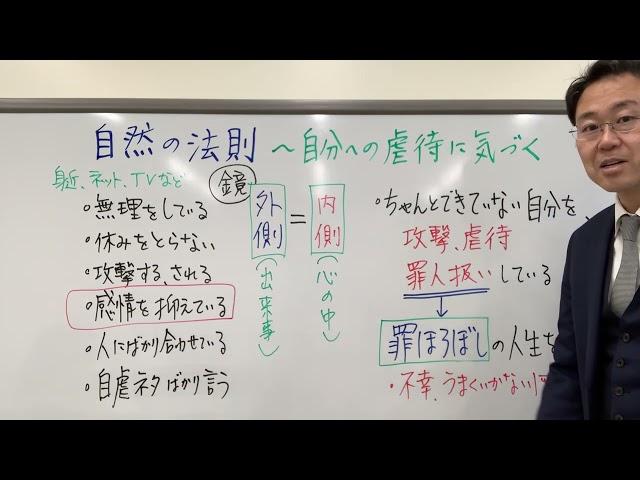 自然の法則 〜自分への虐待に気づく
身近、ネット、TVなど
・無理をしている
・休みをとらない
・攻撃する、される
・感情を抑えている
・人にばかり合わせている
・自虐ネタばかり言う
鏡
外側 = 内側
(出来事)
(心の中)
・ちゃんとできていない自分を、
攻撃、虐待
罪人扱いしている
↓
罪ほろぼしの人生を
・不幸、うまくいかない